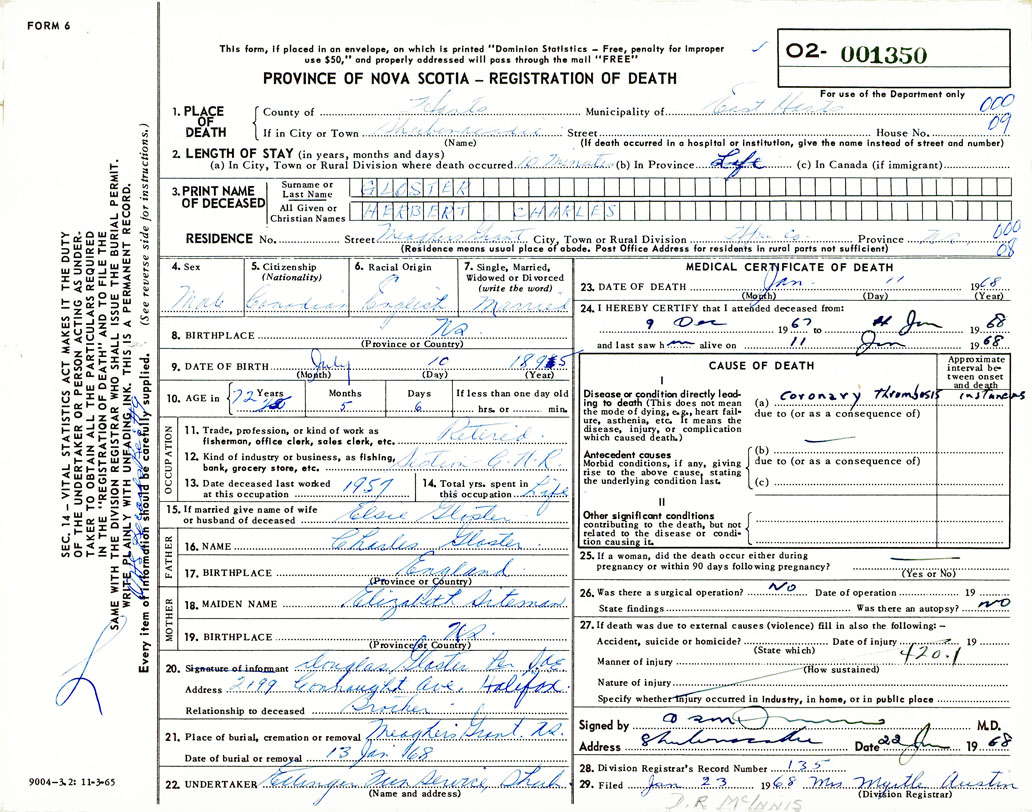 FORM 6
This form, if placed in an envelope, on which is printed "Dominion Statistics – Free, penalty for improper
use $50," and properly addressed will pass through the mail "FREE"
PROVINCE OF NOVA SCOTIA – REGISTRATION OF DEATH
02- 001350
For use of the Department only
000
09
1. PLACE OF DEATH
County of Hants Municipality of East Hants
If in City or Town Shubenacadie Street House No.
(Name) (If death occurred in a hospital or institution, give the name instead of street and number)
2. LENGTH OF STAY (in years, months and days)
(a) In City, Town or Rural Division where death occurred 10 Minutes (b) In Province Life (c) In Canada (if immigrant)
3. PRINT NAME OF DECEASED
Surname or Last Name GLOSTER
All Given or Christian Names HERBERT CHARLES
RESIDENCE No. Street Meaghers Grant City, Town or Rural Division Hfx Co. Province NS
000
08
(Residence means usual place of abode. Post Office Address for residents in rural parts not sufficient)
4. Sex Male
5. Citizenship (Nationality) Canadian
6. Racial Origin English
7. Single, Married, Widowed or Divorced (write the word) Married
8. BIRTHPLACE NS
(Province or Country)
9. DATE OF BIRTH July 10 1895
(Month) (Day) (Year)
10. AGE in 72 Years Months 5 Days 6 If less than one day old hrs. or min.
OCCUPATION
11. Trade, profession, or kind of work as fisherman, office clerk, sales clerk, etc. Retired
12. Kind of industry or business, as fishing, bank, grocery store, etc. C.N.R.
13. Date deceased last worked at this occupation 1957
14. Total yrs. spent in this occupation Life
15. If married give name of wife or husband of deceased Elsie Gloster
FATHER
16. NAME Charles Gloster
17. BIRTHPLACE England
(Province or Country)
MOTHER
18. MAIDEN NAME Elizabeth Siteman
19. BIRTHPLACE NS
(Province or Country)
20. Signature of informant Douglas Gloster Per
Address 2199 Connaught Ave, Halifax
Relationship to deceased Brother
21. Place of burial, cremation or removal Meaghers Grant. NS.
Date of burial or removal 13 Jan '68
22. UNDERTAKER Ettinger Fun Service, Shub
(Name and address)
MEDICAL CERTIFICATE OF DEATH
23. DATE OF DEATH Jan. 11 1968
(Month) (Day) (Year)
24. I HEREBY CERTIFY that I attended deceased from:
9 Dec 1967 to 11 Jan 1968
and last saw him alive on 11 Jan 1968
CAUSE OF DEATH
Approximate interval between onset and death
I
Disease or condition directly leading to death (This does not mean the mode of dying, e.g., heart failure, asthenia, etc. It means the disease, injury, or complication which caused death.)
(a) coronary thrombosis
due to (or as a consequence of)
Antecedent causes
Morbid conditions, if any, giving rise to the above cause, stating the underlying condition last.
(b)
due to (or as a consequence of)
(c)
II
Other significant conditions
contributing to the death, but not related to the disease or condition causing it.
25. If a woman, did the death occur either during pregnancy or within 90 days following pregnancy?
(Yes or No)
26. Was there a surgical operation? NO Date of operation 19
State findings Was there an autopsy? NO
27. If death was due to external causes (violence) fill in also the following: –
Accident, suicide or homicide? Date of injury 19
(State which)
420.1
Manner of injury
(How sustained)
Nature of injury
Specify whether injury occurred in industry, in home, or in public place
Signed by M.D.
Address Shubenacadie Date 22 Jan 1968
28. Division Registrar's Record Number 135
29. Filed Jan 23 1968 Mrs Myrtle Austin
(Division Registrar)
D.R McINNIS
SEC. 14 – VITAL STATISTICS ACT MAKES IT THE DUTY
OF THE UNDERTAKER OR PERSON ACTING AS UNDER-
TAKER TO OBTAIN ALL THE PARTICULARS REQUIRED
IN THE "REGISTRATION OF DEATH" AND TO FILE THE
SAME WITH THE DIVISION REGISTRAR WHO SHALL ISSUE THE BURIAL PERMIT.
WRITE PLAINLY WITH UNFADING INK. THIS IS A PERMANENT RECORD.
Every item of information should be carefully supplied. (See reverse side for instructions.)
9004–3.2: 11-3-65